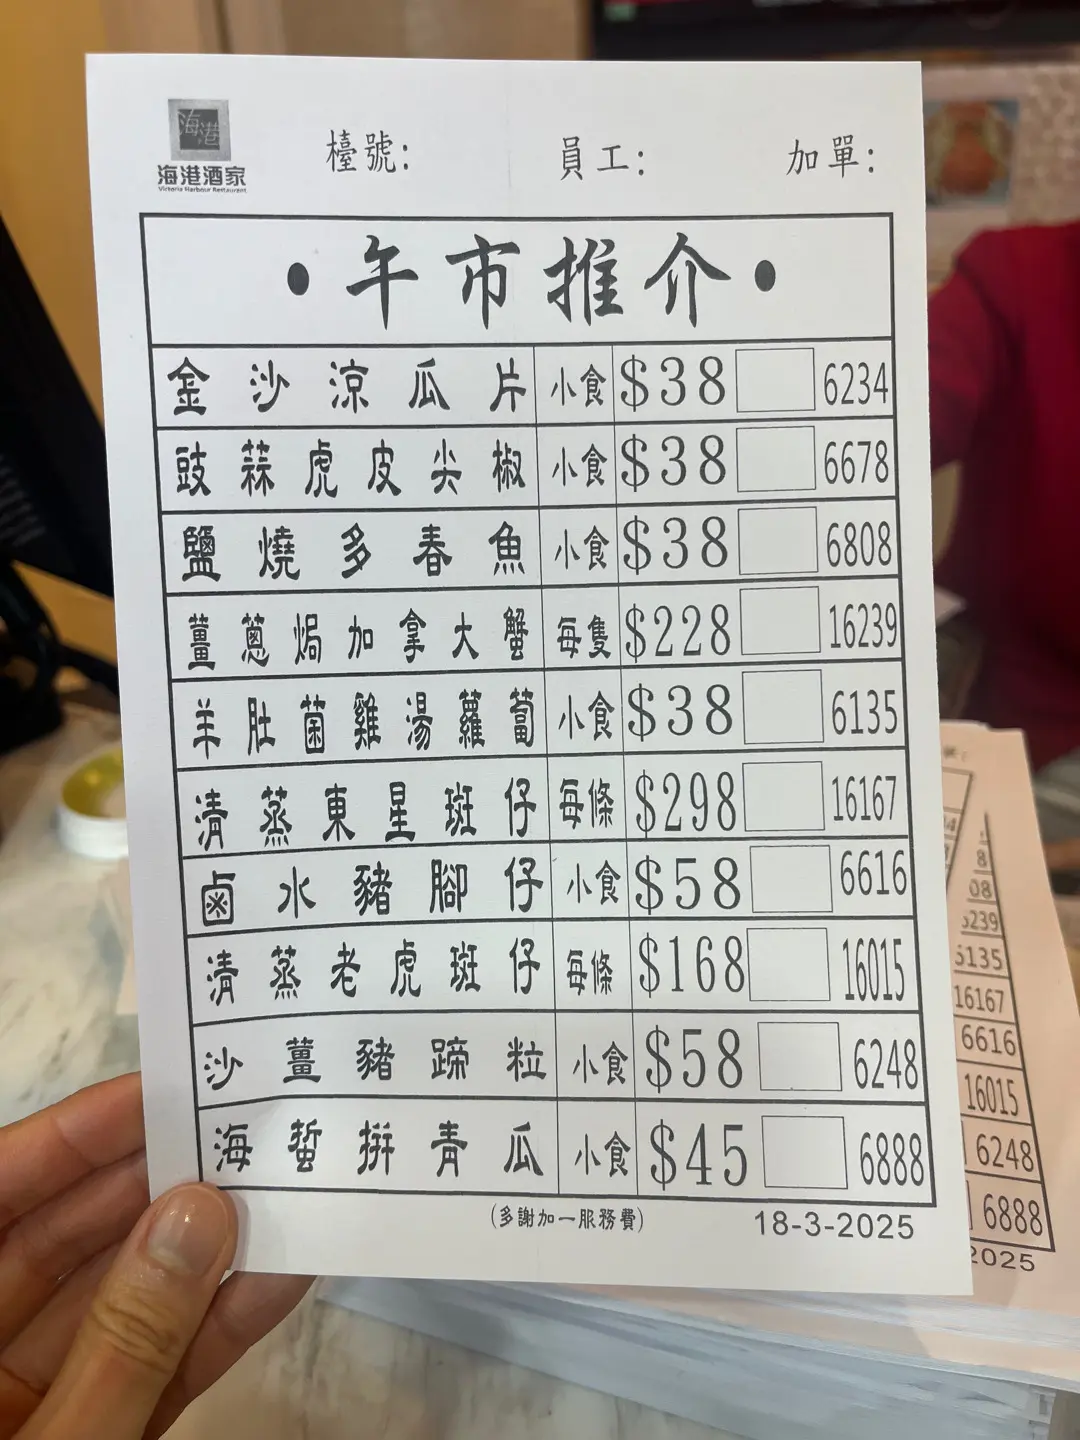 海港
海港酒家
Victoria Harbour Restaurant
檯號: 員工: 加單:
•午市推介•
金沙涼瓜片 小食 $38 6234
豉蒜虎皮尖椒 小食 $38 6678
鹽燒多春魚 小食 $38 6808
薑蔥焗加拿大蟹 每隻 $228 16239
羊肚菌雞湯蘿蔔 小食 $38 6135
清蒸東星斑仔 每條 $298 16167
鹵水豬腳仔 小食 $58 6616
清蒸老虎斑仔 每條 $168 16015
沙薑豬蹄粒 小食 $58 6248
海蜇拼青瓜 小食 $45 6888
(多謝加一服務費) 18-3-2025
8
08
5239
6135
16167
6616
16015
6248
6888
2025